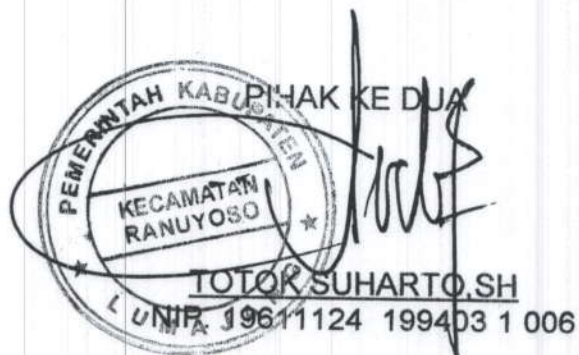 PIHAK KE DUA
PEMERINTAH KABUPATEN
KECAMATAN
RANUYOSO
LUMAJANG
TOTOK SUHARTO,SH
NIP 19611124 199403 1 006